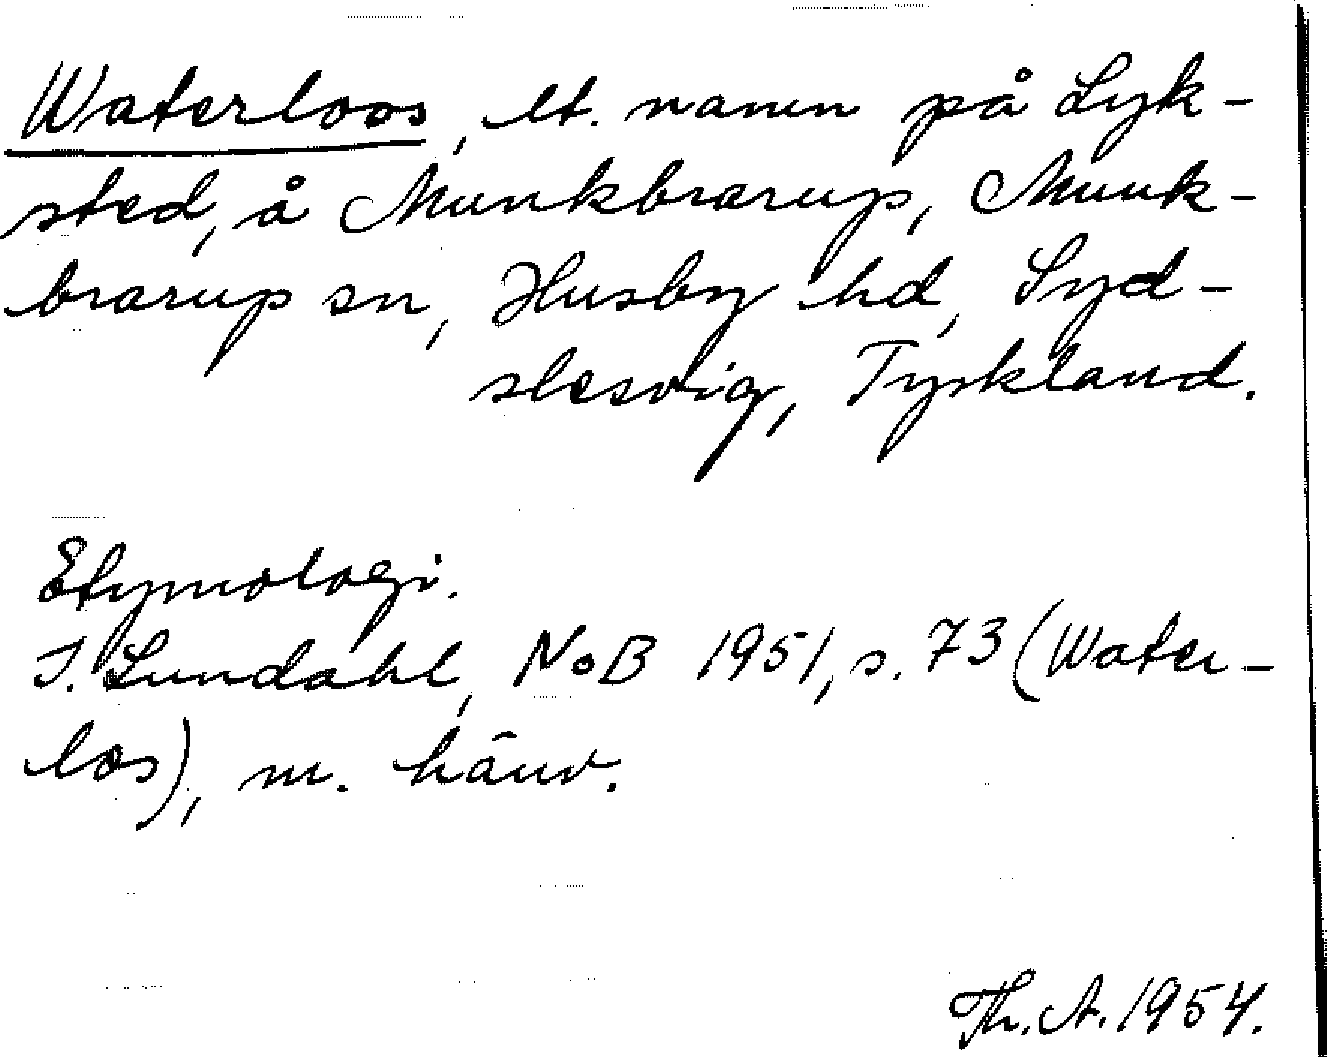 Waterloos, lt. namn på Lyk-
sted, å Munkbrarup, Munk-
brarup sn, Husby hd, Syd-
slesvig, Tyskland.
Etymologi.
I. Lundahl, NoB 1951, s. 73 (Water-
los), m. hänv.
Th. A. 1954.